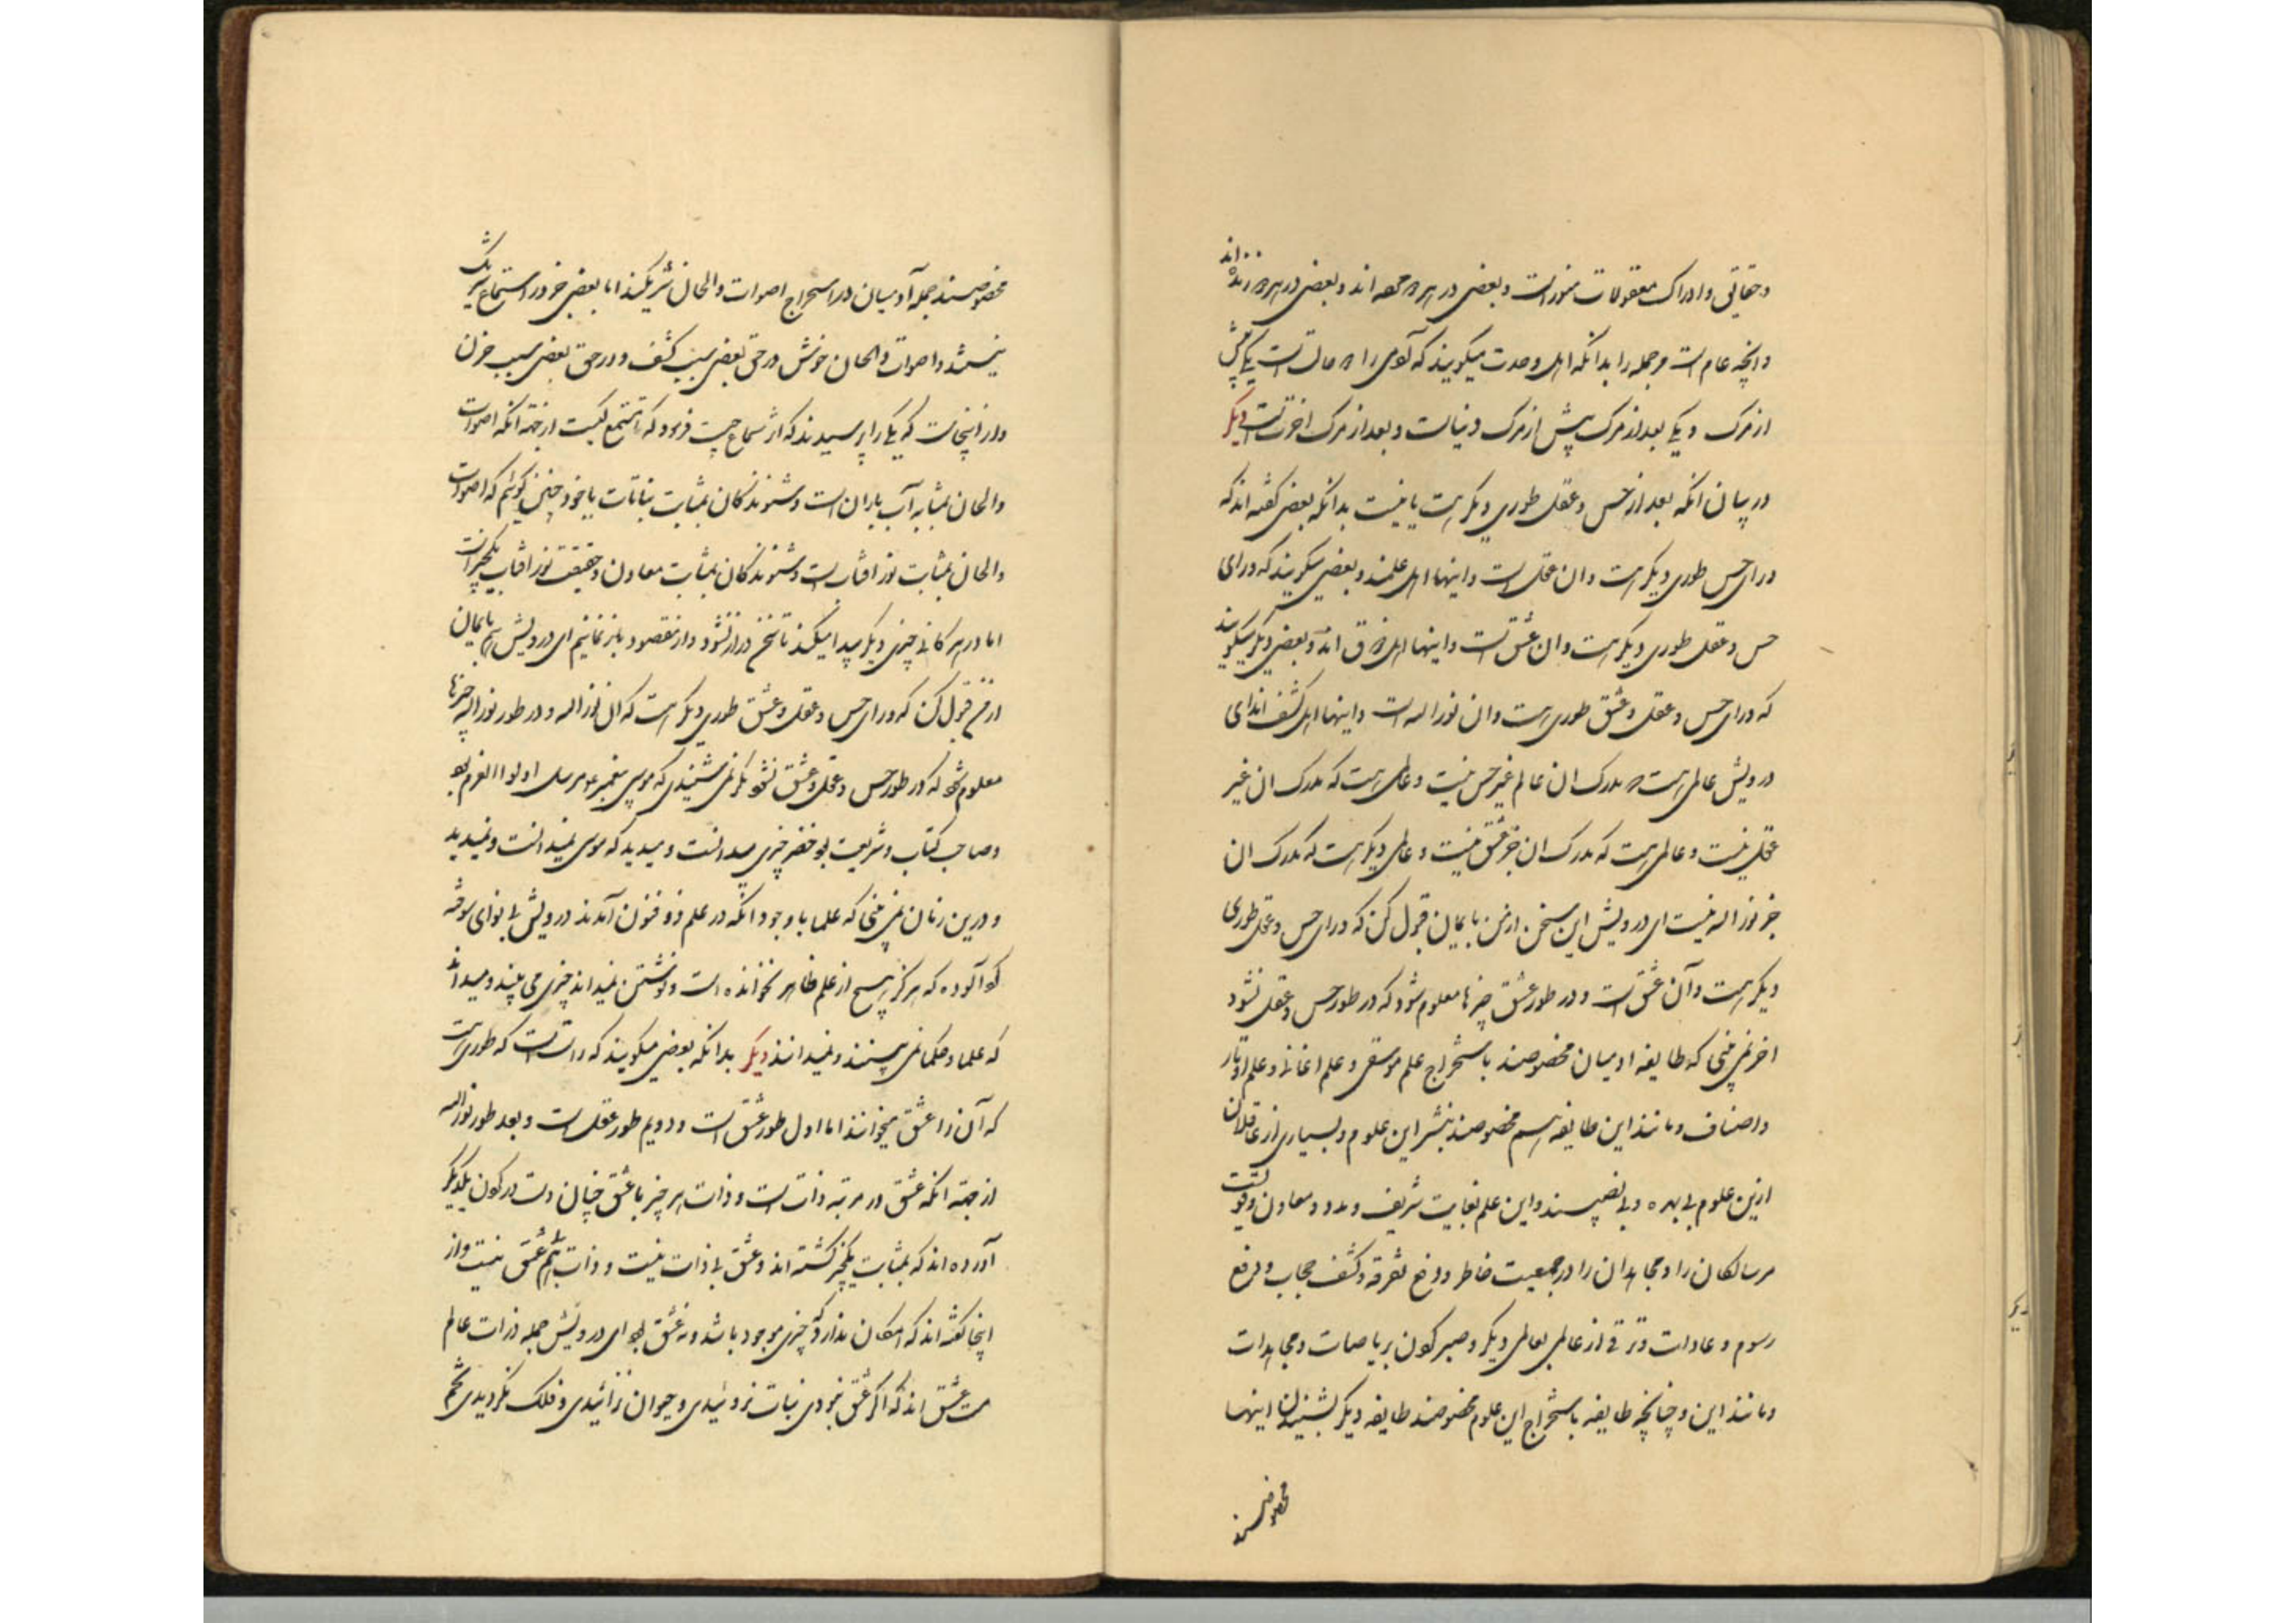 و حقایق و ادراک معقولات منور است و بعضی در هر دو حصه اند و بعضی در هر دو زنده اند
و آنچه عام است مر جمله را بدانکه اهل وحدت میگویند که آدمی را دو حالت است یکی پیش
از مرگ و یکی بعد از مرگ پیش از مرگ دنیاست و بعد از مرگ اخرتست دیگر
در بیان آنکه بعد از حس و عقل طوری دیگر هست یا نیست بدانکه بعضی گفته اند که
ورای حس طوری دیگر هست و ان عقل است و اینها اهل علمند و بعضی میگویند که ورای
حس و عقل طوری دیگر هست و ان عشق است و اینها اهل ذوق اند و بعضی دیگر میگویند
که ورای حس و عقل و عشق طوری هست و ان نور اله است و اینها اهل کشف اند ای
درویش عالمی هست که مدرک ان عالم غیر حس نیست و عالمی هست که مدرک ان غیر
عقل نیست و عالمی هست که مدرک ان جز عشق نیست و عالمی دیگر هست که مدرک ان
جز نور اله نیست ای درویش این سخن از من بایمان قبول کن که ورای حس و عقل طوری
دیگر هست و آن عشق است و در طور عشق چیزها معلوم شود که در طور حس و عقل نشود
اخر نمی بینی که طایفه ادمیان مخصوصند باستخراج علم موسقی و علم اغانی و علم اوتار
و اصناف و مانند این طایفه هم مخصوصند بنشر این علوم و بسیاری از عاقلان
ازین علوم بی بهره و بی نصیبند و این علم بغایت شریف و مدد و معاون و قوتست
مر سالکان را و مجاهدان را در جمعیت خاطر و دفع تفرقه و کشف حجاب و رفع
رسوم و عادات و ترقی از عالمی بعالمی دیگر و صبر کردن بر ریاضات و مجاهدات
و مانند این و چنانچه طایفه باستخراج این علوم مخصوصند طایفه دیگر بشنیدن اینها
مخصوصند
مخصوصند جمله آدمیان در استخراج اصوات و الحان شریکند اما بعضی خود در استماع شریک
نیستند و اصوات و الحان خوش در حق بعضی سبب کشف و در حق بعضی سبب حزن
و از اینجاست که یکی را پرسیدند که اثر سماع چیست فرمود که تا مستمع کیست از جهة آنکه اصوات
و الحان بمثابه آب باران است و شنوندگان بمثابت نباتات یا خود چنین گوئیم که اصوات
و الحان بمثابت نور افتاب است و شنوندگان بمثابت معادن و حقیقت نور افتاب یکچیز است
اما در هر کانی چیزی دیگر پیدا میکند تا سخن دراز نشود و از مقصود باز نمانیم ای درویش بایمان
از من قبول کن که ورای حس و عقل و عشق طوری دیگر هست که ان نور اله و در طور نور اله چیزها
معلوم شود که در طور حس و عقل و عشق نشود مگر نمی شنیدی که موسی پیغمبر مرسل اولوا العزم بود
و صاحب کتاب و شریعت بود خضر چیزی میدانست و میدید که موسی نمیدانست و نمیدید
و درین زمان نمی بینی که علما با وجود آنکه در علم ذو فنون آمدند درویش بی نوای سوخته
گرد آلوده که هرگز هیچ از علم ظاهر نخوانده است و نوشتن نمیداند چیزی می بیند و میداند
که علما و حکما نمی بینند و نمیدانند دیگر بدانکه بعضی میگویند که راست است که طوری هست
که آن را عشق میخوانند اما اول طور عشق است و دویم طور عقل است و بعد طور نور اله
از جهة آنکه عشق در مرتبه ذات است و ذات هر چیز با عشق چنان دست در گردن یکدیگر
آورده اند که بمثابت یکچیز گشته اند و عشق بی ذات نیست و ذات هم بی عشق نیست و از
اینجا گفته اند که امکان ندارد که چیزی موجود باشد و نه عشق بود ای درویش جمله ذرات عالم
مست عشق اند که اگر عشق نبودی نبات نروئیدی و حیوان نزائیدی و فلک نگردیدی تخم